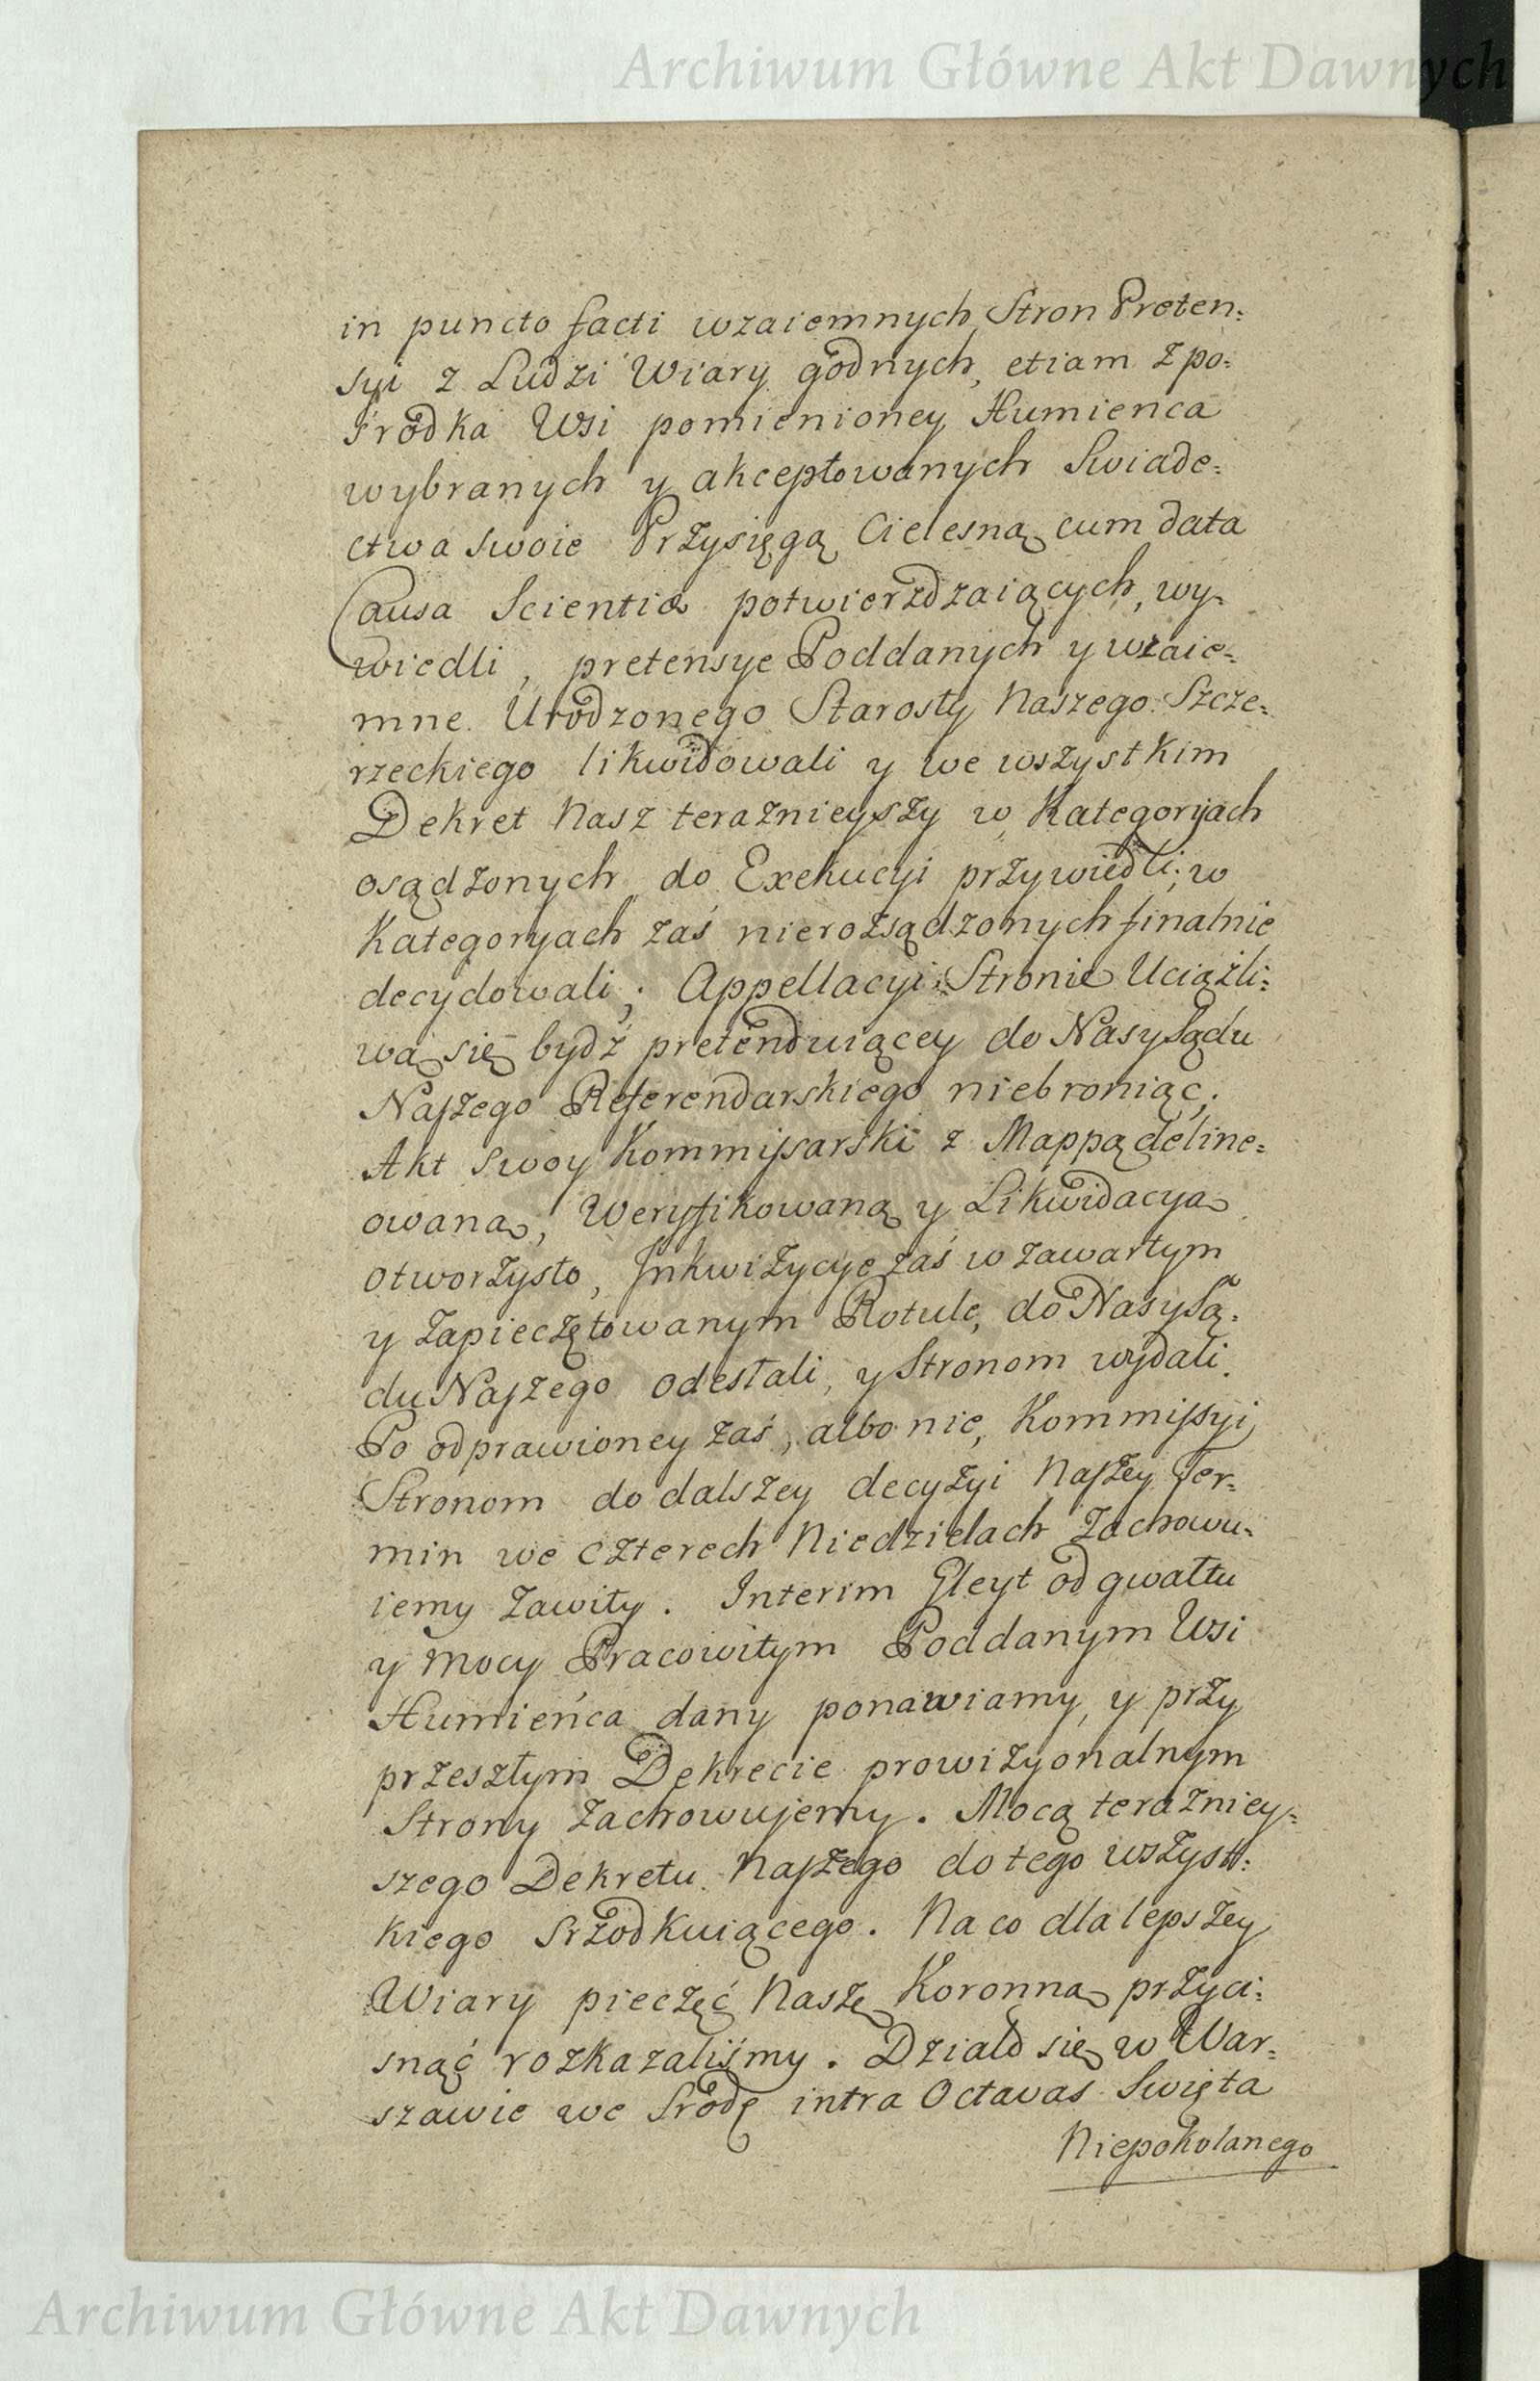 Archiwum Główne Akt Dawnych
in puncto facti wzaiemnych Stron Preten:
syi z Ludzi Wiary godnych, etiam z po:
środka Wsi pomienioney Humienca
wybranych y akceptowanych Swiade:
ctwa swoie Przysięgą Cielesną cum data
Causa Scientiæ potwierdzaiących, wy:
wiedli, pretensye Poddanych y wzaie:
mne Urodzonego Starosty Naszego Szcze:
rzeckiego likwidowali y we wszystkim
Dekret Nasz teraznieyszy w Kategoryach
osądzonych do Exekucyi przywiedli; w
Kategoryach zaś nierozsądzonych finalnie
decydowali; Appellacyi Stronie Uciążli:
wą się bydź pretenduiącey do Nas y Sądu
Naszego Referendarskiego niebroniąc.
Akt swoy Kommissarski z Mappą deline:
owaną, Weryfikowaną y Likwidacyą
otworzysto, Inkwizycye zaś w zawartym
y zapieczętowanym Rotule, do Nas y Są:
du Naszego odesłali, y Stronom wydali.
Po odprawioney zaś, albo nie, Kommissyi
Stronom do dalszey decyzyi Naszey Ter:
min we czterech Niedzielach zachowu:
iemy zawity. Interim Gleyt od gwałtu
y mocy Pracowitym Poddanym Wsi
Humieńca dany ponawiamy, y przy
przeszłym Dekrecie prowizyonalnym
Strony zachowujemy. Mocą teraźniey:
szego Dekretu Naszego do tego wszyst:
kiego srzodkuiącego. Na co dla lepszey
Wiary pieczęć Naszę Koronną przyci:
snąć rozkazaliśmy. Działo się w War:
szawie we Srodę intra Octavas Swięta
Niepokolanego
Archiwum Główne Akt Dawnych